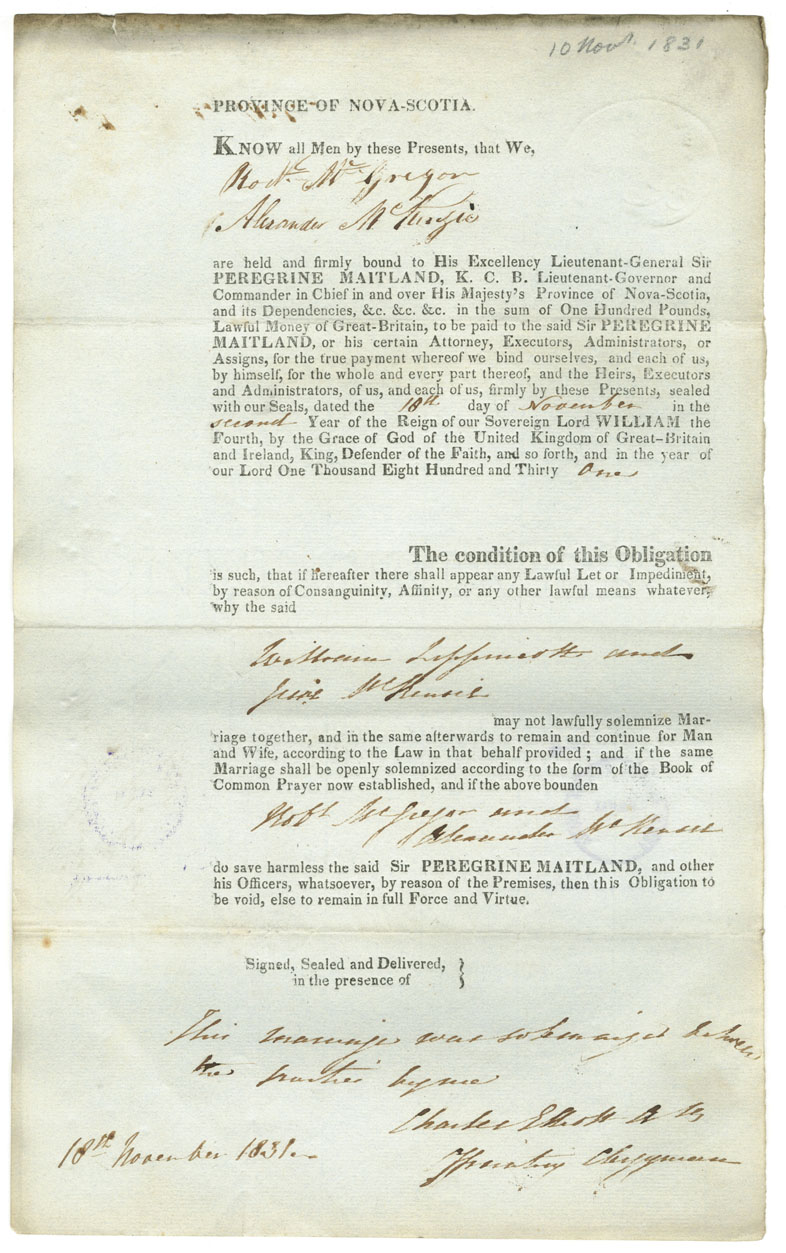 10 Novr. 1831
PROVINCE OF NOVA-SCOTIA.
KNOW all Men by these Presents, that We,
McGregor
Alexander McKenzie
are held and firmly bound to His Excellency Lieutenant-General Sir
PEREGRINE MAITLAND, K. C. B. Lieutenant-Governor and
Commander in Chief in and over His Majesty's Province of Nova-Scotia,
and its Dependencies, &c. &c. &c. in the sum of One Hundred Pounds,
Lawful Money of Great-Britain, to be paid to the said Sir PEREGRINE
MAITLAND, or his certain Attorney, Executors, Administrators, or
Assigns, for the true payment whereof we bind ourselves, and each of us,
by himself, for the whole and every part thereof, and the Heirs, Executors
and Administrators, of us, and each of us, firmly by these Presents, sealed
with our Seals, dated the 18th day of November in the
second Year of the Reign of our Sovereign Lord WILLIAM the
Fourth, by the Grace of God of the United Kingdom of Great-Britain
and Ireland, King, Defender of the Faith, and so forth, and in the year of
our Lord One Thousand Eight Hundred and Thirty One
The condition of this Obligation
is such, that if hereafter there shall appear any Lawful Let or Impediment,
by reason of Consanguinity, Affinity, or any other lawful means whatever,
why the said
William Lippincott and
McKensie
may not lawfully solemnize Mar-
riage together, and in the same afterwards to remain and continue for Man
and Wife, according to the Law in that behalf provided ; and if the same
Marriage shall be openly solemnized according to the form of the Book of
Common Prayer now established, and if the above bounden
Robt McGregor and
Alexander McKensie
do save harmless the said Sir PEREGRINE MAITLAND, and other
his Officers, whatsoever, by reason of the Premises, then this Obligation to
be void, else to remain in full Force and Virtue.
Signed, Sealed and Delivered, }
in the presence of }
This marriage was solemnized between
the parties by me
Charles Elliott
18th November 1831 Clergyman